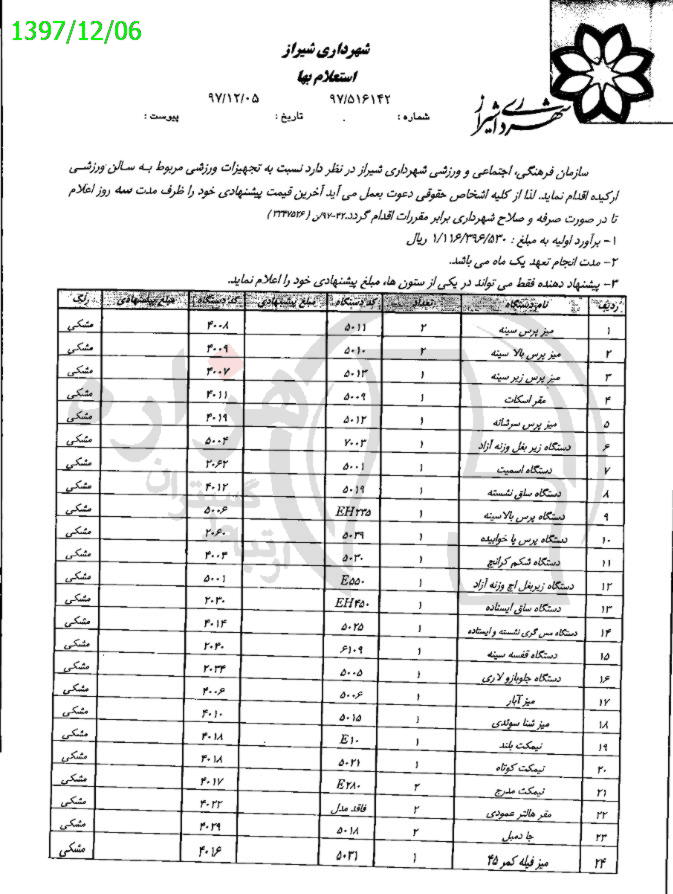 1397/12/06
شهرداری شیراز
استعلام بها
شهرداری شیراز
۹۷/۵۱۶۱۴۲ ۹۷/۱۲/۰۵
شماره : تاریخ : پیوست :
سازمان فرهنگی، اجتماعی و ورزشی شهرداری شیراز در نظر دارد نسبت به تجهیزات ورزشی مربوط به سالن ورزشی
ارکیده اقدام نماید. لذا از کلیه اشخاص حقوقی دعوت بعمل می آید آخرین قیمت پیشنهادی خود را ظرف مدت سه روز اعلام
تا در صورت صرفه و صلاح شهرداری برابر مقررات اقدام گردد.
۱- برآورد اولیه به مبلغ : ۱/۱۱۶/۳۹۶/۵۳۰ ریال
۲- مدت انجام تعهد یک ماه می باشد.
۳- پیشنهاد دهنده فقط می تواند در یکی از ستون ها، مبلغ پیشنهادی خود را اعلام نماید.
ردیف نام دستگاه تعداد کد دستگاه مبلغ پیشنهادی کد دستگاه مبلغ پیشنهادی رنگ
۱ میز پرس سینه ۲ ۵۰۱۱ ۴۰۰۸ مشکی
۲ میز پرس بالا سینه ۲ ۵۰۱۰ ۴۰۰۹ مشکی
۳ میز پرس زیر سینه ۱ ۵۰۱۳ ۴۰۰۷ مشکی
۴ مقر اسکات ۱ ۵۰۰۹ ۴۰۱۱ مشکی
۵ میز پرس سرشانه ۱ ۵۰۱۲ ۴۰۱۹ مشکی
۶ دستگاه زیر بغل وزنه آزاد ۱ ۷۰۰۳ ۵۰۰۴ مشکی
۷ دستگاه اسمیت ۱ ۵۰۰۱ ۲۰۶۲ مشکی
۸ دستگاه ساق نشسته ۱ ۵۰۱۹ ۴۰۱۲ مشکی
۹ دستگاه پرس بالاسینه ۱ EH۲۳۵ ۵۰۰۶ مشکی
۱۰ دستگاه پرس پا خوابیده ۱ ۵۰۳۹ ۲۰۶۰ مشکی
۱۱ دستگاه شکم کرانچ ۱ ۵۰۳۰ ۴۰۰۳ مشکی
۱۲ دستگاه زیربغل اچ وزنه آزاد ۱ E۵۵۰ ۵۰۰۱ مشکی
۱۳ دستگاه ساق ایستاده ۱ EH۴۵۰ ۲۰۳۰ مشکی
۱۴ دستگاه سس گری نشسته و ایستاده ۱ ۵۰۲۵ ۴۰۱۴ مشکی
۱۵ دستگاه قفسه سینه ۱ ۶۱۰۹ ۲۰۴۰ مشکی
۱۶ دستگاه جلوبازو لاری ۱ ۵۰۰۵ ۲۰۳۴ مشکی
۱۷ میز آبار ۱ ۵۰۰۶ ۴۰۰۶ مشکی
۱۸ میز شنا سوئدی ۱ ۵۰۱۵ ۴۰۱۰ مشکی
۱۹ نیمکت بلند ۱ E۱۰ ۴۰۱۸ مشکی
۲۰ نیمکت کوتاه ۱ ۵۰۲۱ ۴۰۱۸ مشکی
۲۱ نیمکت مدرج ۲ E۲۸۰ ۴۰۱۷ مشکی
۲۲ مقر هالتر عمودی ۲ فاقد مدل ۴۰۲۲ مشکی
۲۳ جا دمبل ۲ ۵۰۱۸ ۴۰۲۹ مشکی
۲۴ میز فیله کمر ۴۵ ۱ ۵۰۳۱ ۴۰۱۶ مشکی